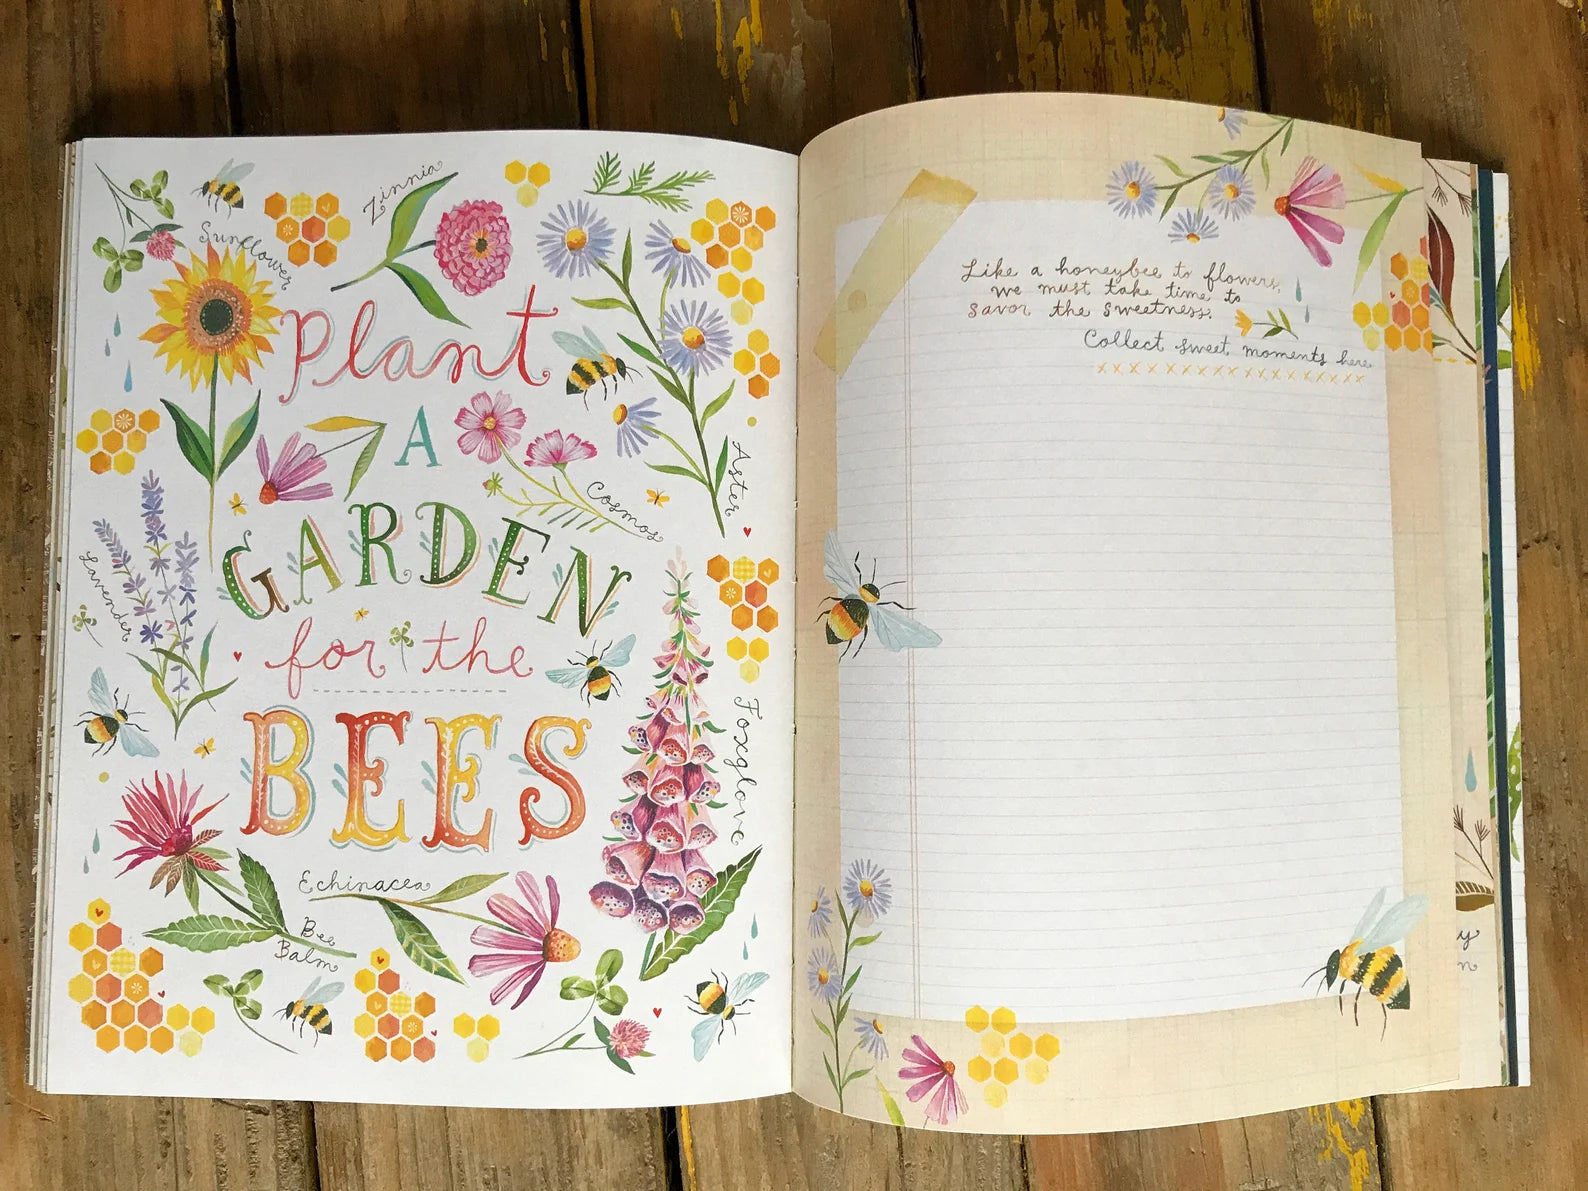 Zinnia
Sunflower
Plant
A
Cosmos
Aster
GARDEN
Lavender
for the
BEES
Foxglove
Echinacea
Bee
Balm
Like a honeybee to flowers,
we must take time to
savor the sweetness.
Collect sweet moments here